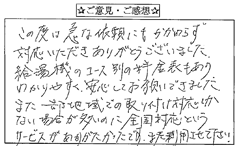 ☆ご意見・ご感想☆
この度は急な依頼にもかかわらず
対応いただきありがとうございました。
給湯機のコース別の料金表もあり
わかりやすく、安心してお願いできました。
また一部地域での取り付け対応しか
ない場合が多いのに全国対応という
サービスがありがたかったです。また利用させて下さい。